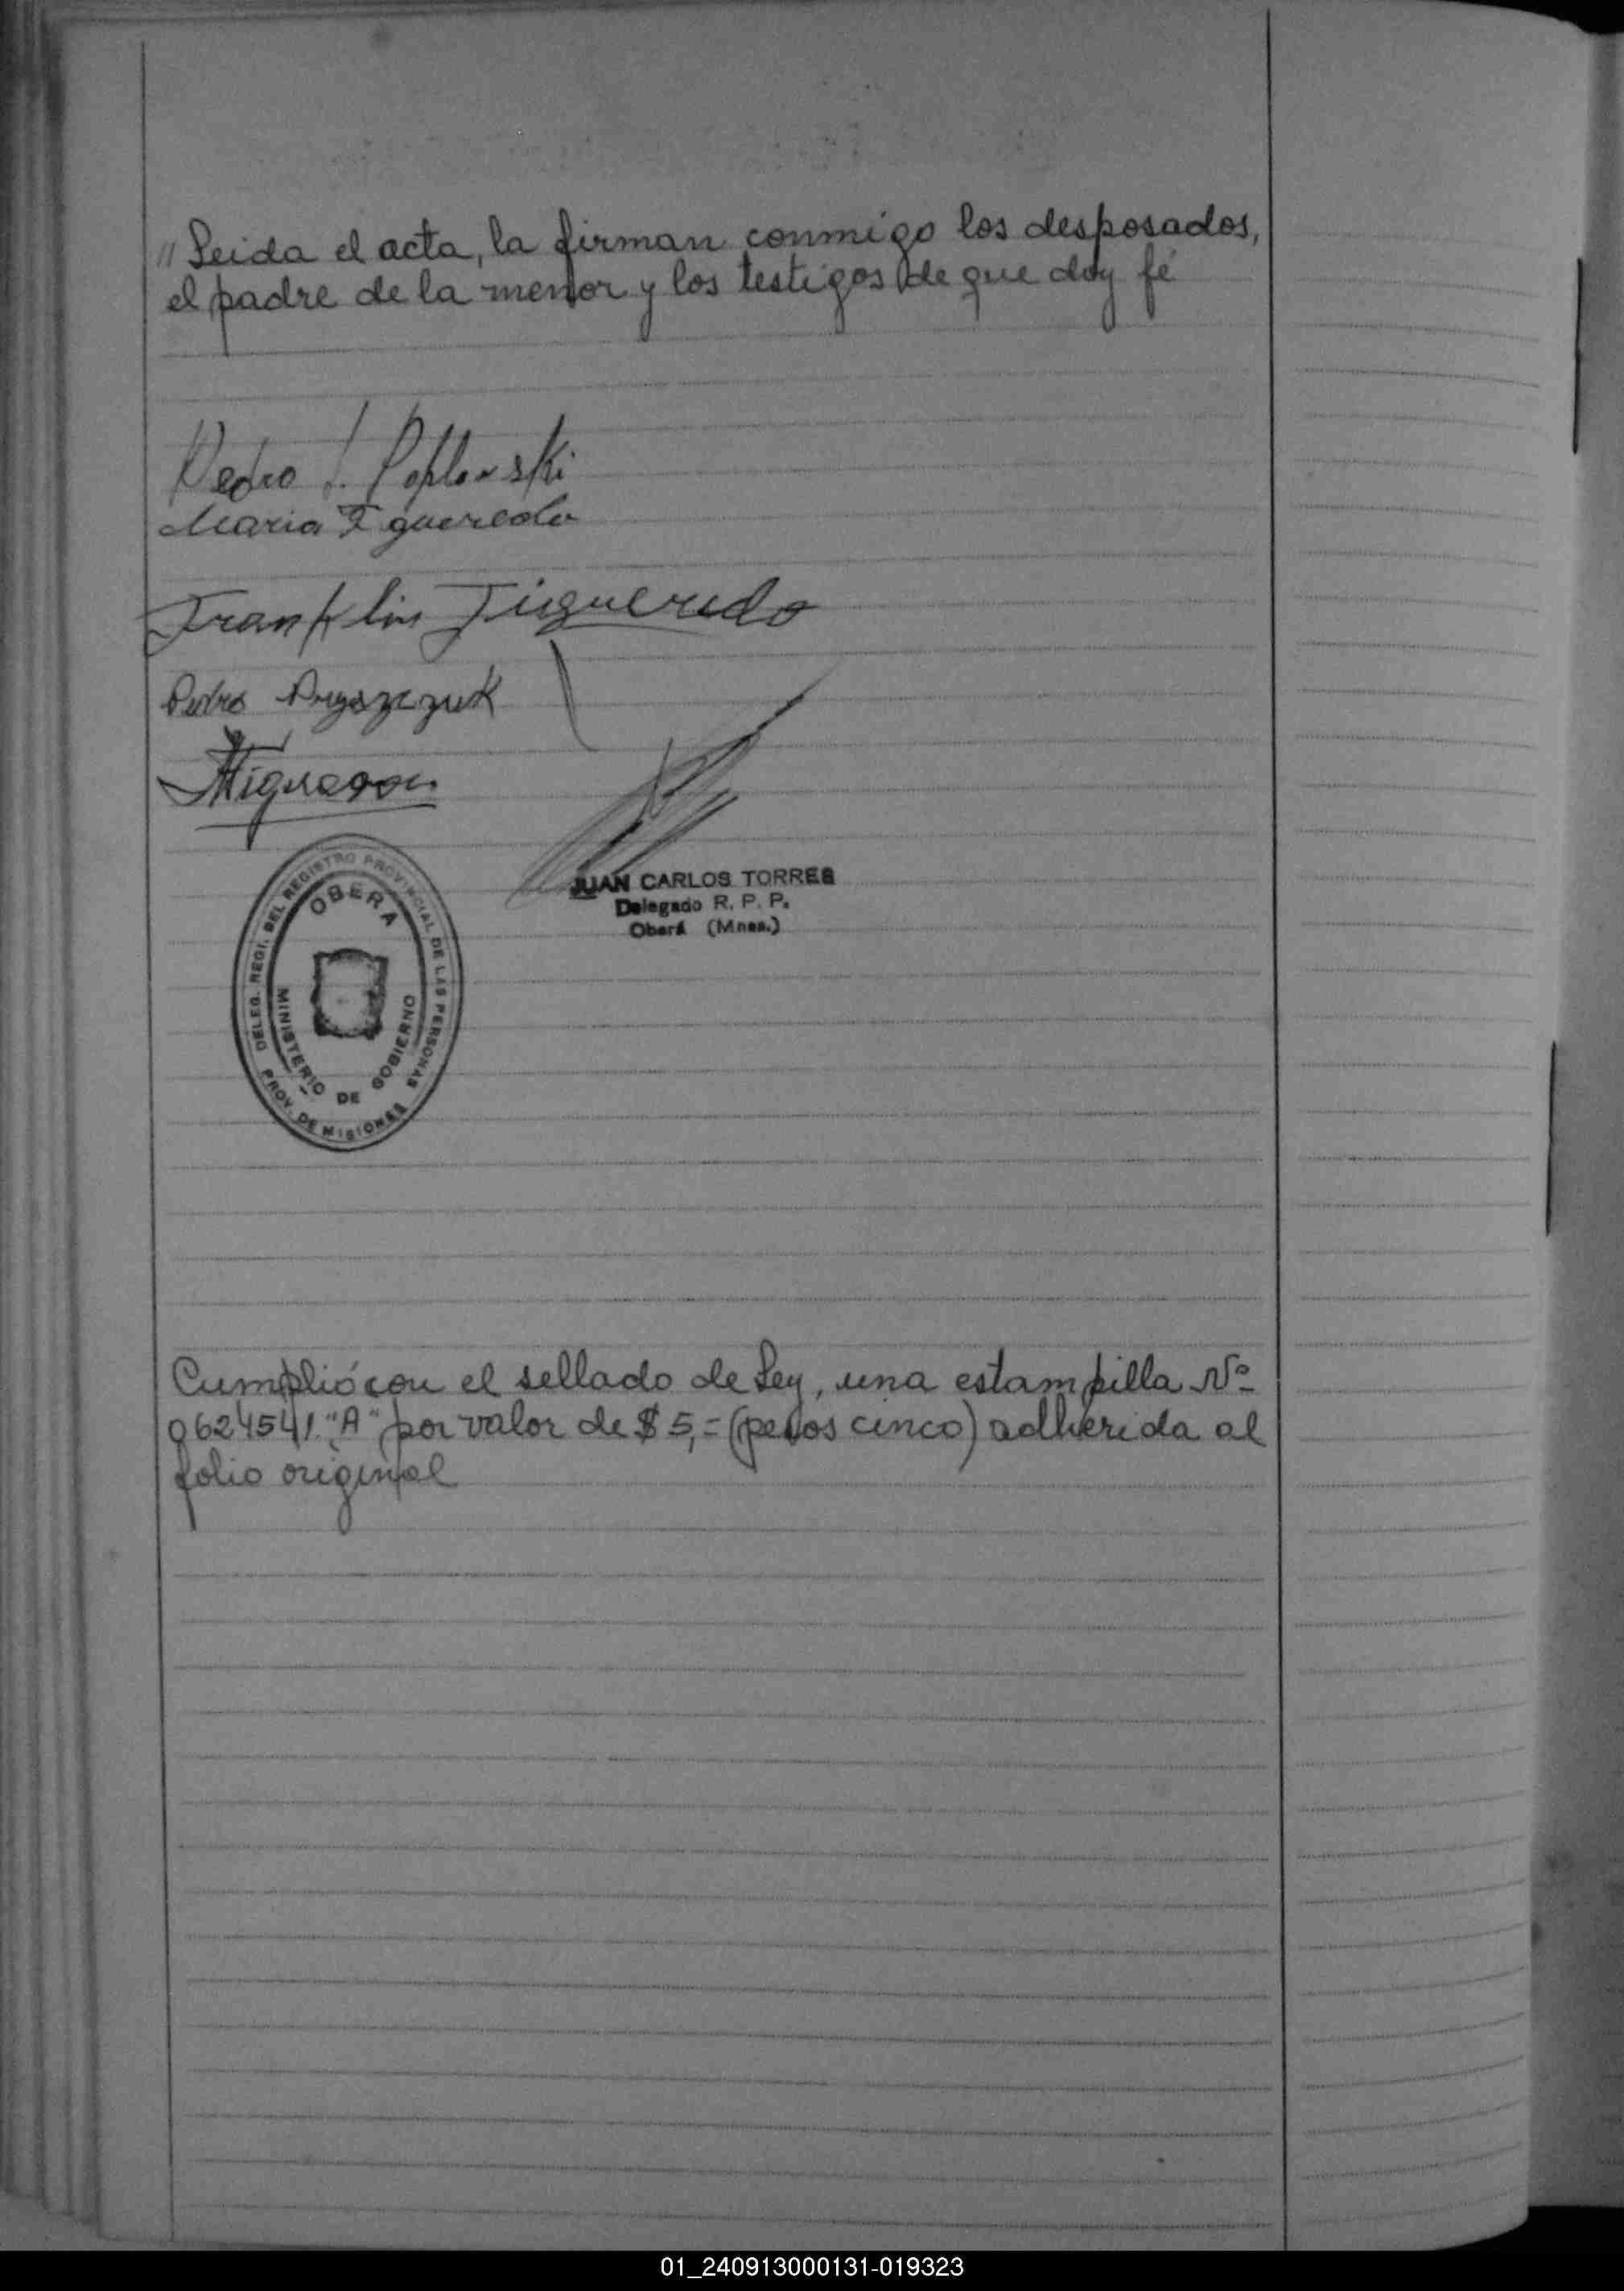 " Leida el acta, la firman conmigo los desposados,
el padre de la menor y los testigos de que doy fé
Pedro J. Poplavski
Maria Figueredo
Franklin Figueredo
Pedro
JUAN CARLOS TORRES
Delegado R. P. P.
Oberá (Mnes.)
DELEG. REGI. DEL REGISTRO PROVINCIAL DE LAS PERSONAS
OBERA
MINISTERIO DE GOBIERNO
PROV. DE MISIONES
Cumplió con el sellado de Ley, una estampilla Nº
0624541 "A" por valor de $ 5,= (pesos cinco) adherida al
folio original
01_240913000131-019323